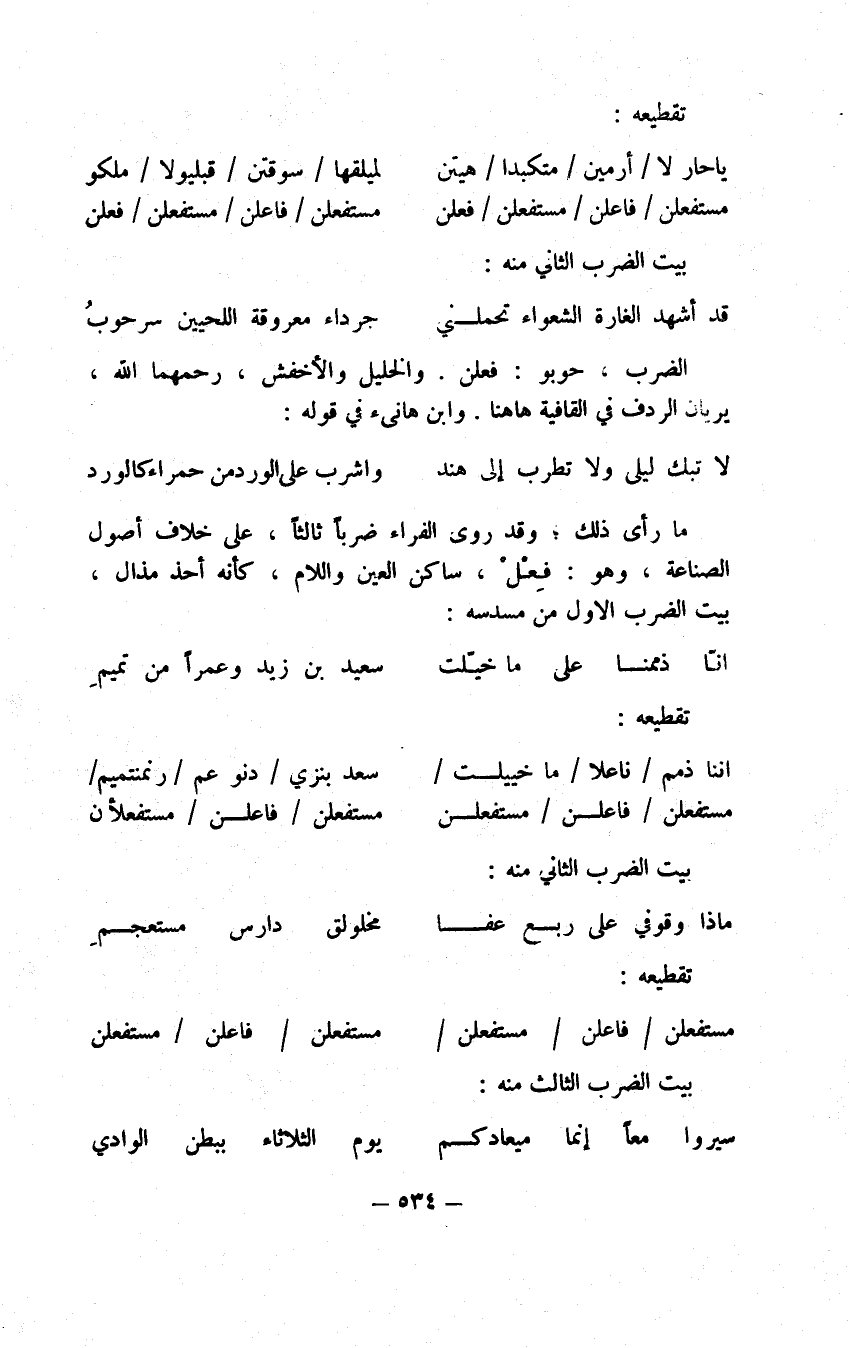 تقطيعه :
ياحار لا / أرمين / متكبدا / هيتن لميلقها / سوقتن / قبليولا / ملكو
مستفعلن / فاعلن / مستفعلن / فعلن مستفعلن / فاعلن / مستفعلن / فعلن
بيت الضرب الثاني منه :
قد أشهد الغارة الشعواء تحملـــني جرداء معروقة اللحيين سرحوبُ
الضرب ، حوبو : فعلن . والخليل والأخفش ، رحمهما الله ،
يريان الردف في القافية هاهنا . وابن هانىء في قوله :
لا تبك ليلى ولا تطرب إلى هند واشرب على الورد من حمراء كالورد
ما رأى ذلك ؛ وقد روى الفراء ضرباً ثالثاً ، على خلاف أصول
الصناعة ، وهو : فِعْلْ ، ساكن العين واللام ، كأنه أحذ مذال ،
بيت الضرب الاول من مسدسه :
انّا ذممنـــا على ما خيّلت سعيد بن زيد وعمراً من تميمِ
تقطيعه :
اننا ذمم / ناعلا / ما خييلـــت / سعد بنزي / دنو عم / رنمنتميم/
مستفعلن / فاعلـــن / مستفعلـــن مستفعلن / فاعلـــن / مستفعلأن
بيت الضرب الثاني منه :
ماذا وقوفي على ربـــع عفـــــا مخلولق دارس مستعجـــمِ
تقطيعه :
مستفعلن / فاعلن / مستفعلن / مستفعلن / فاعلن / مستفعلن
بيت الضرب الثالث منه :
سيروا معاً إنما ميعادكـــم يوم الثلاثاء ببطن الوادي
— ٥٣٤ —